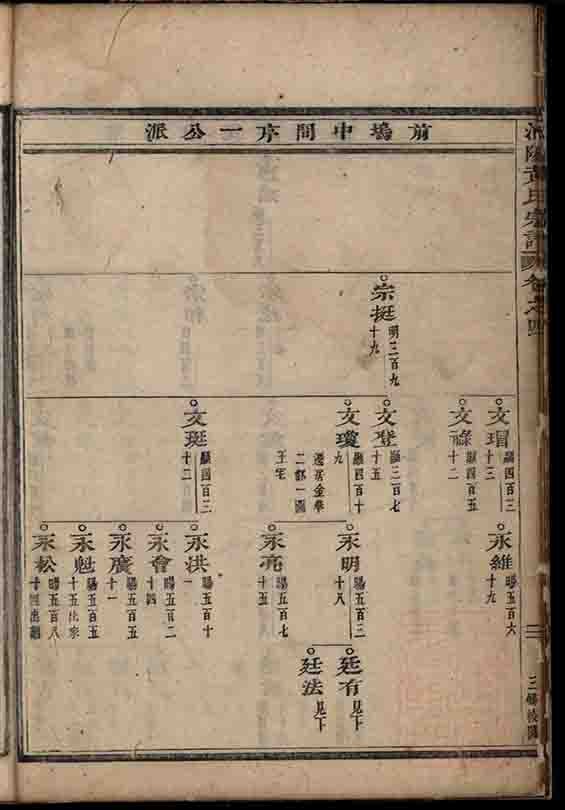 前塢中間序一公派
宗挺
明三百九
十九
文瑁
顯四百三
十三
文祿
顯四百五
十二
文登
顯三百七
十五
文瓊
顯四百十
九
遷居金華
二都一圖
王宅
文珽
顯四百三
十二
永維
暘五百六
十九
永明
暘五百三
十八
永亮
暘五百七
十五
永洪
暘五百十
一
永會
暘五百二
十四
永廣
暘五百五
十一
永魁
暘五百五
十五出家
永松
暘五百八
十四出繼
廷有
見下
廷法
見下
黃氏宗譜
卷之四